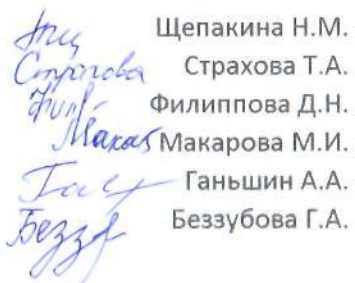 Щепакина Н.М.
Страхова Страхова Т.А.
Филиппова Д.Н.
Макар Макарова М.И.
Ганьшин А.А.
Безз Беззубова Г.А.